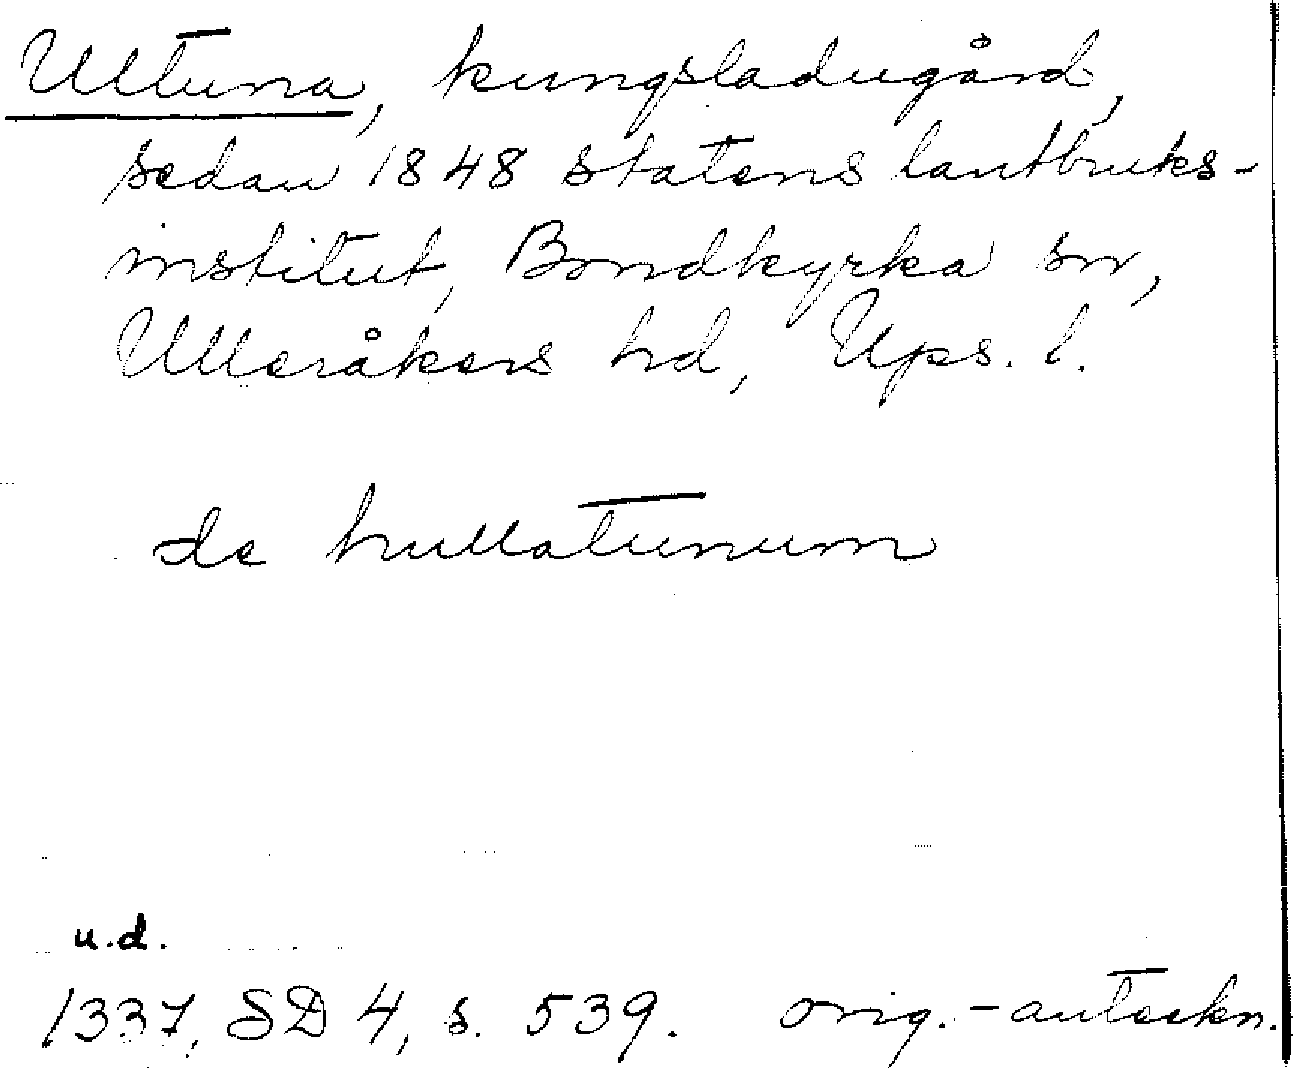 Ultuna, kungsladugård,
sedan 1848 statens lantbruks-
institut, Bondkyrka sn,
Ulleråkers hd, Ups. l.
de hullatunum
u.d.
1337, SD 4, s. 539. orig.-anteckn.